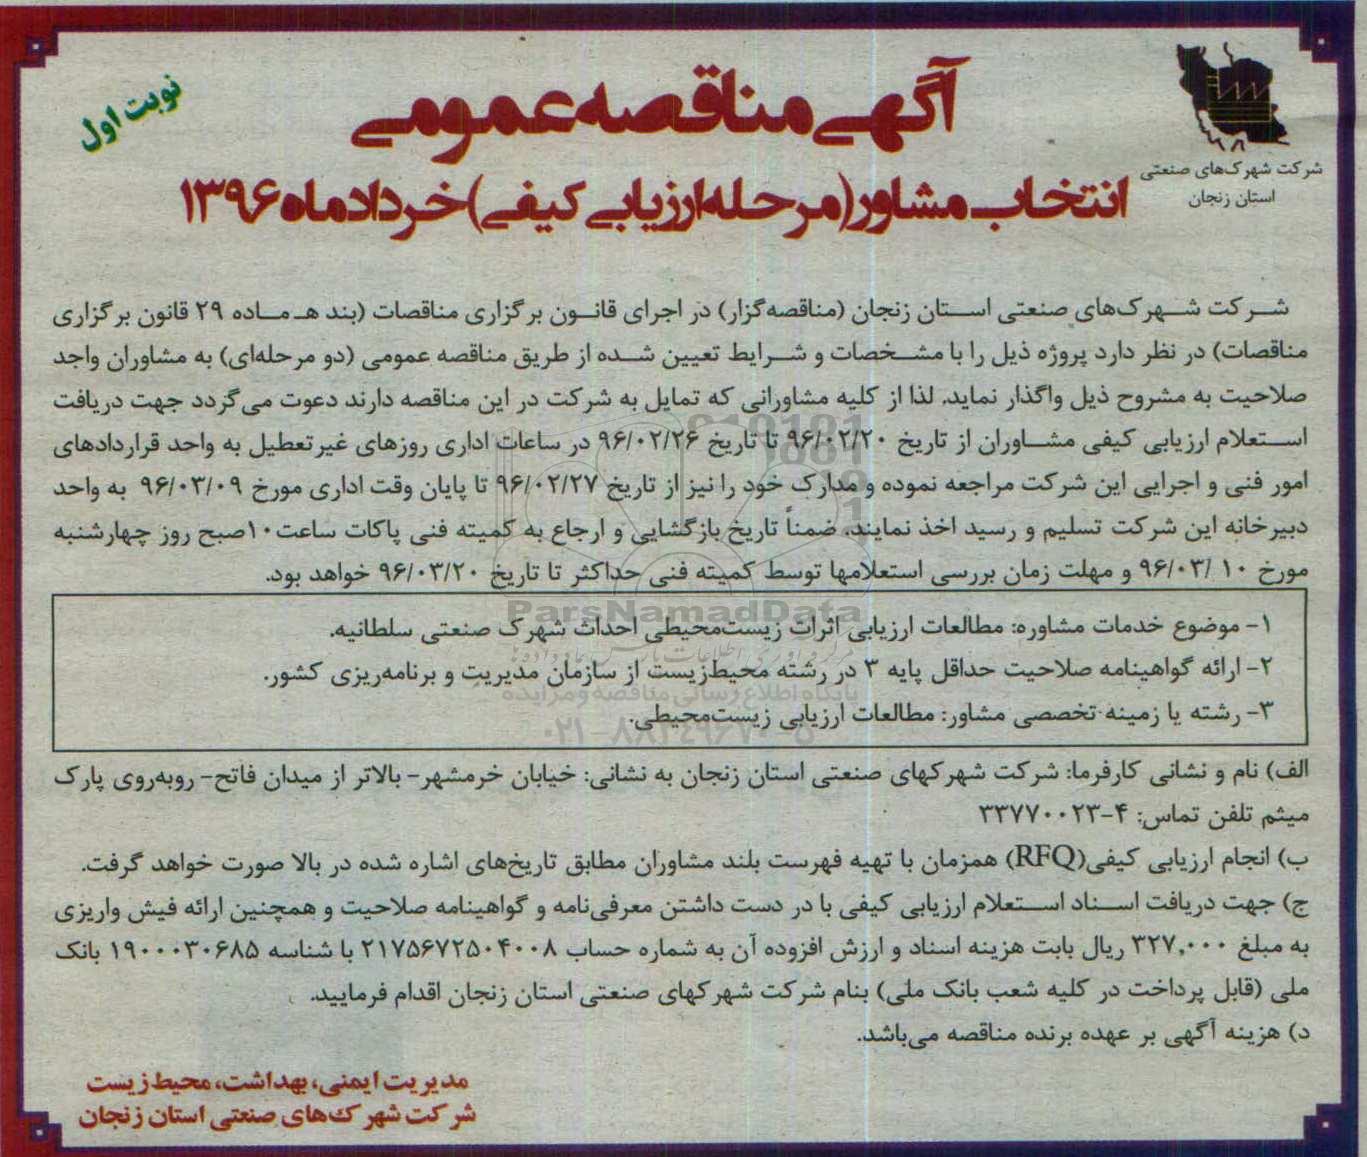 نوبت اول
آگهی مناقصه عمومی
شرکت شهرک‌های صنعتی
استان زنجان
انتخاب مشاور(مرحله ارزیابی کیفی)خرداد ماه ۱۳۹۶
شرکت شهرک‌های صنعتی استان زنجان (مناقصه‌گزار) در اجرای قانون برگزاری مناقصات (بند هـ ماده ۲۹ قانون برگزاری
مناقصات) در نظر دارد پروژه ذیل را با مشخصات و شرایط تعیین شده از طریق مناقصه عمومی (دو مرحله‌ای) به مشاوران واجد
صلاحیت به مشروح ذیل واگذار نماید. لذا از کلیه مشاورانی که تمایل به شرکت در این مناقصه دارند دعوت می‌گردد جهت دریافت
استعلام ارزیابی کیفی مشاوران از تاریخ ۹۶/۰۲/۲۰ تا تاریخ ۹۶/۰۲/۲۶ در ساعات اداری روزهای غیرتعطیل به واحد قراردادهای
امور فنی و اجرایی این شرکت مراجعه نموده و مدارک خود را نیز از تاریخ ۹۶/۰۲/۲۷ تا پایان وقت اداری مورخ ۹۶/۰۳/۰۹ به واحد
دبیرخانه این شرکت تسلیم و رسید اخذ نمایند. ضمناً تاریخ بازگشایی و ارجاع به کمیته فنی پاکات ساعت۱۰صبح روز چهارشنبه
مورخ ۹۶/۰۳/۱۰ و مهلت زمان بررسی استعلامها توسط کمیته فنی حداکثر تا تاریخ ۹۶/۰۳/۲۰ خواهد بود.
ParsNamadData
۱- موضوع خدمات مشاوره: مطالعات ارزیابی اثرات زیست‌محیطی احداث شهرک صنعتی سلطانیه.
۲- ارائه گواهینامه صلاحیت حداقل پایه ۳ در رشته محیط‌زیست از سازمان مدیریت و برنامه‌ریزی کشور.
پایگاه اطلاع رسانی مناقصه و مزایده
۳- رشته یا زمینه تخصصی مشاور: مطالعات ارزیابی زیست‌محیطی.
۰۲۱-۸۸۳۴۹۶۷۰-۵
الف) نام و نشانی کارفرما: شرکت شهرکهای صنعتی استان زنجان به نشانی: خیابان خرمشهر- بالاتر از میدان فاتح- روبه‌روی پارک
میثم تلفن تماس: ۴-۳۳۷۷۰۰۲۳
ب) انجام ارزیابی کیفی(RFQ) همزمان با تهیه فهرست بلند مشاوران مطابق تاریخ‌های اشاره شده در بالا صورت خواهد گرفت.
ج) جهت دریافت اسناد استعلام ارزیابی کیفی با در دست داشتن معرفی‌نامه و گواهینامه صلاحیت و همچنین ارائه فیش واریزی
به مبلغ ۳۲۷,۰۰۰ ریال بابت هزینه اسناد و ارزش افزوده آن به شماره حساب ۲۱۷۵۶۷۲۵۰۴۰۰۸ با شناسه ۱۹۰۰۰۳۰۶۸۵ بانک
ملی (قابل پرداخت در کلیه شعب بانک ملی) بنام شرکت شهرکهای صنعتی استان زنجان اقدام فرمایید.
د) هزینه آگهی بر عهده برنده مناقصه می‌باشد.
مدیریت ایمنی، بهداشت، محیط زیست
شرکت شهرک‌های صنعتی استان زنجان